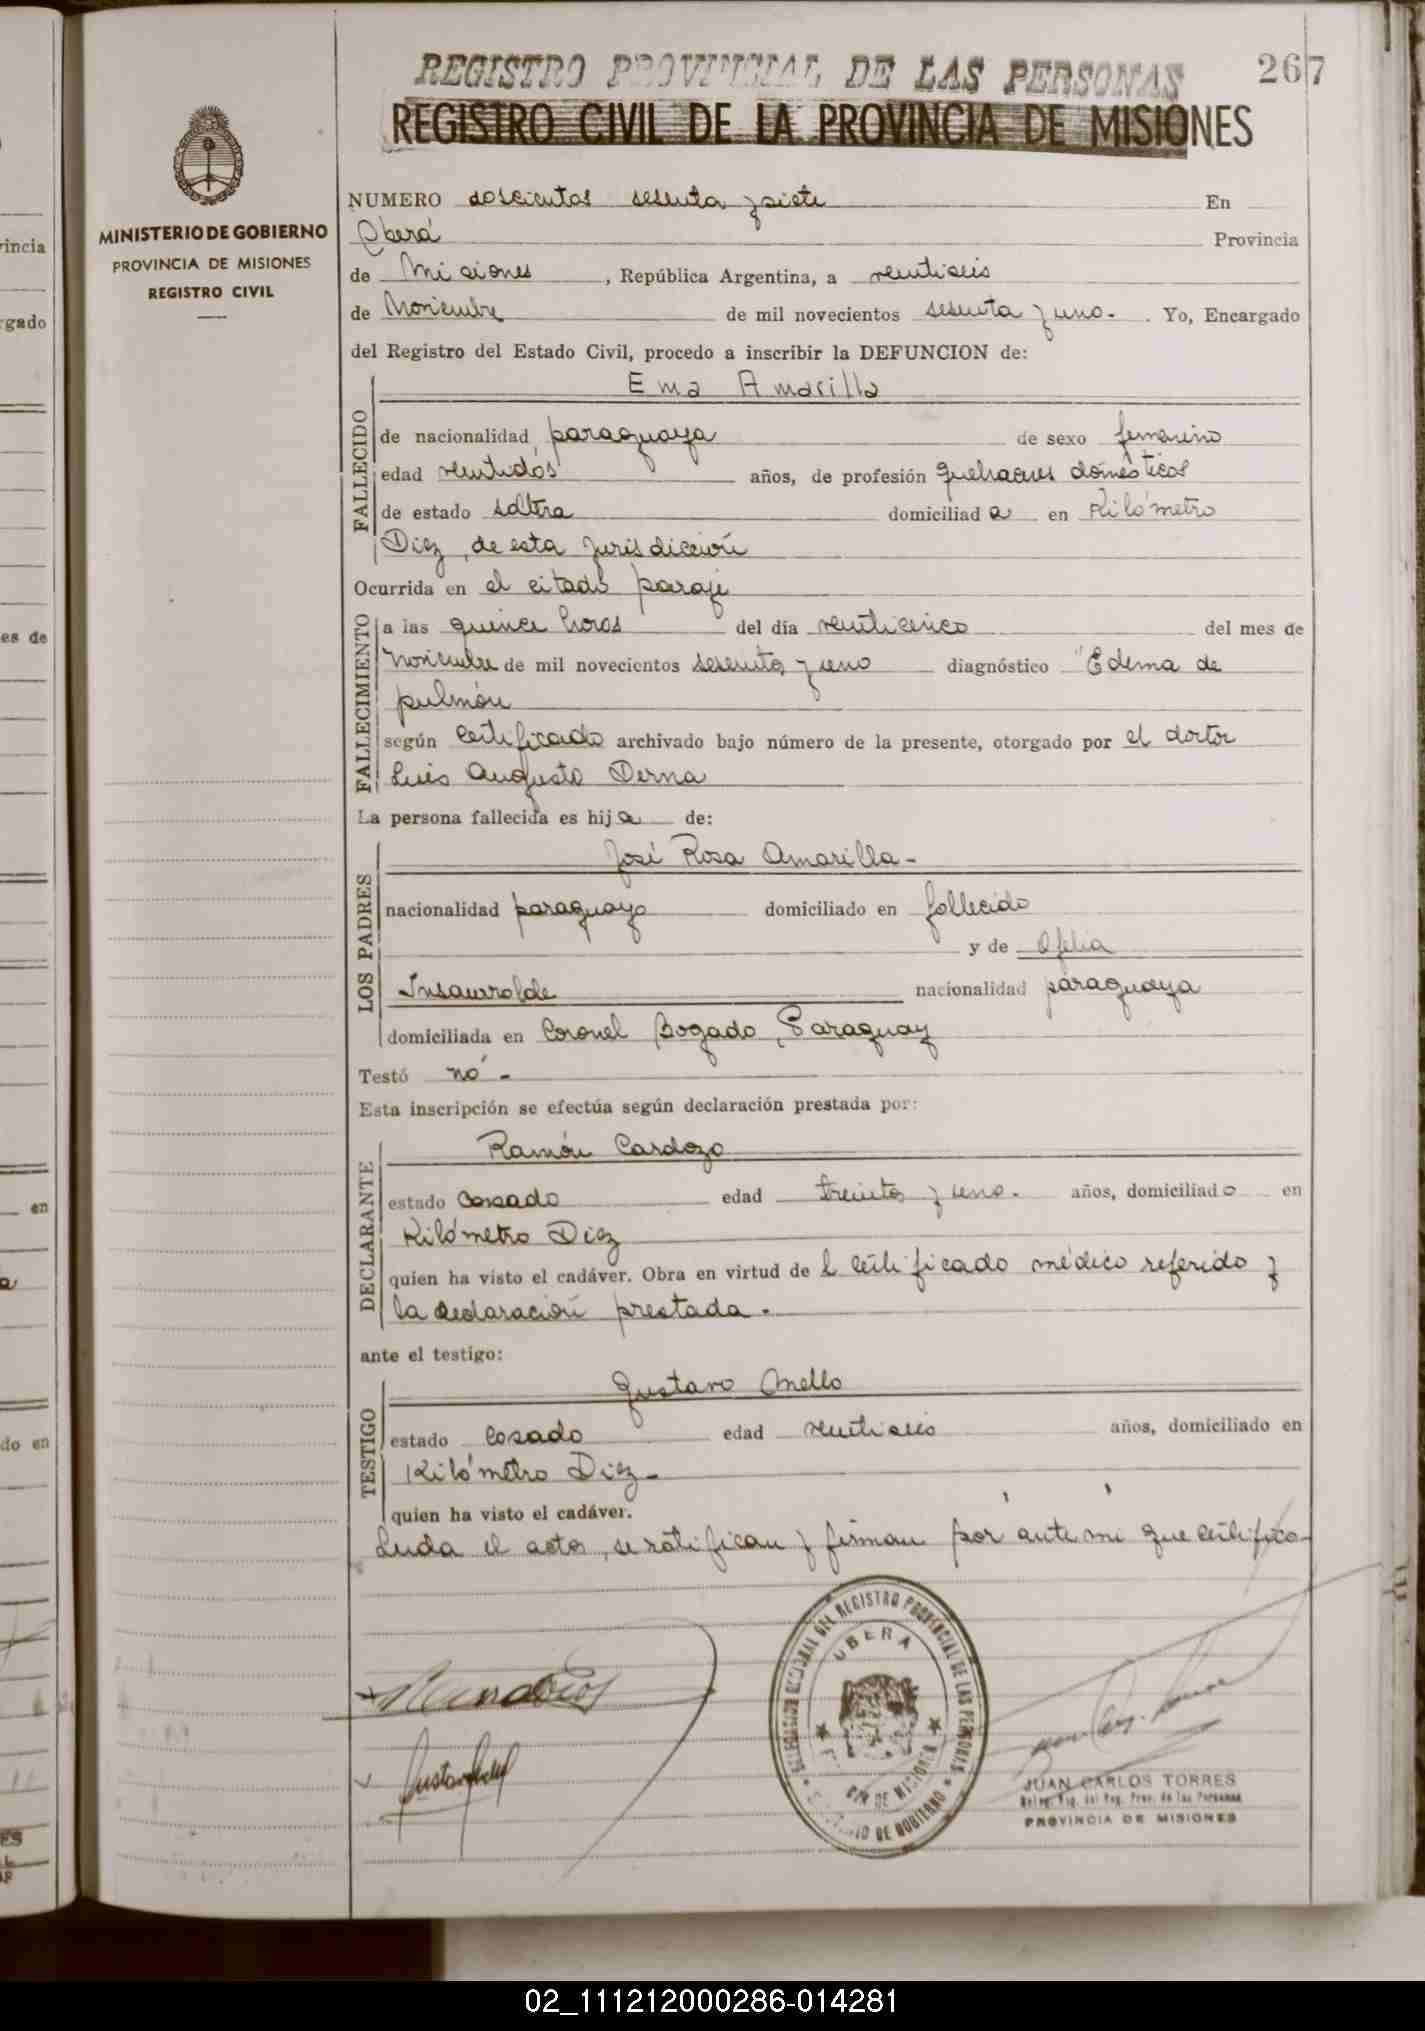 REGISTRO PROVINCIAL DE LAS PERSONAS 267
REGISTRO CIVIL DE LA PROVINCIA DE MISIONES
MINISTERIO DE GOBIERNO
PROVINCIA DE MISIONES
REGISTRO CIVIL
NUMERO doscientos sesenta y siete En
Oberá Provincia
de Misiones, República Argentina, a veintiseis
de Noviembre de mil novecientos sesenta y uno-. Yo, Encargado
del Registro del Estado Civil, procedo a inscribir la DEFUNCION de:
Ema Amarilla
FALLECIDO
de nacionalidad paraguaya de sexo femenino
edad veintidós años, de profesión quehaceres domésticos
de estado soltera domiciliad a en Kilómetro
Diez, de esta jurisdicción
Ocurrida en el citado paraje
FALLECIMIENTO
a las quince horas del día veinticinco del mes de
Noviembre de mil novecientos sesenta y uno diagnóstico "Edema de
pulmón
según certificado archivado bajo número de la presente, otorgado por el doctor
Luis Augusto Derna
La persona fallecida es hij a de:
LOS PADRES
José Rosa Amarilla-
nacionalidad paraguayo domiciliado en fallecido
y de Ofelia
Insaurralde nacionalidad paraguaya
domiciliada en Coronel Bogado, Paraguay
Testó nó-
Esta inscripción se efectúa según declaración prestada por:
DECLARANTE
Ramón Cardozo
estado casado edad treinta y uno. años, domiciliado en
Kilómetro Diez
quien ha visto el cadáver. Obra en virtud de l certificado médico referido y
la declaración prestada.
ante el testigo:
TESTIGO
Gustavo Mello
estado casado edad veintiseis años, domiciliado en
Kilómetro Diez-
quien ha visto el cadáver.
Leída el acta, se ratifican y firman por ante mi que certifico-
DEL REGISTRO PROVINCIAL DE LAS PERSONAS
OBERA
DE MISIONES
DE GOBIERNO
JUAN CARLOS TORRES
Deleg. Reg. del Reg. Prov. de las Personas
PROVINCIA DE MISIONES
02_111212000286-014281